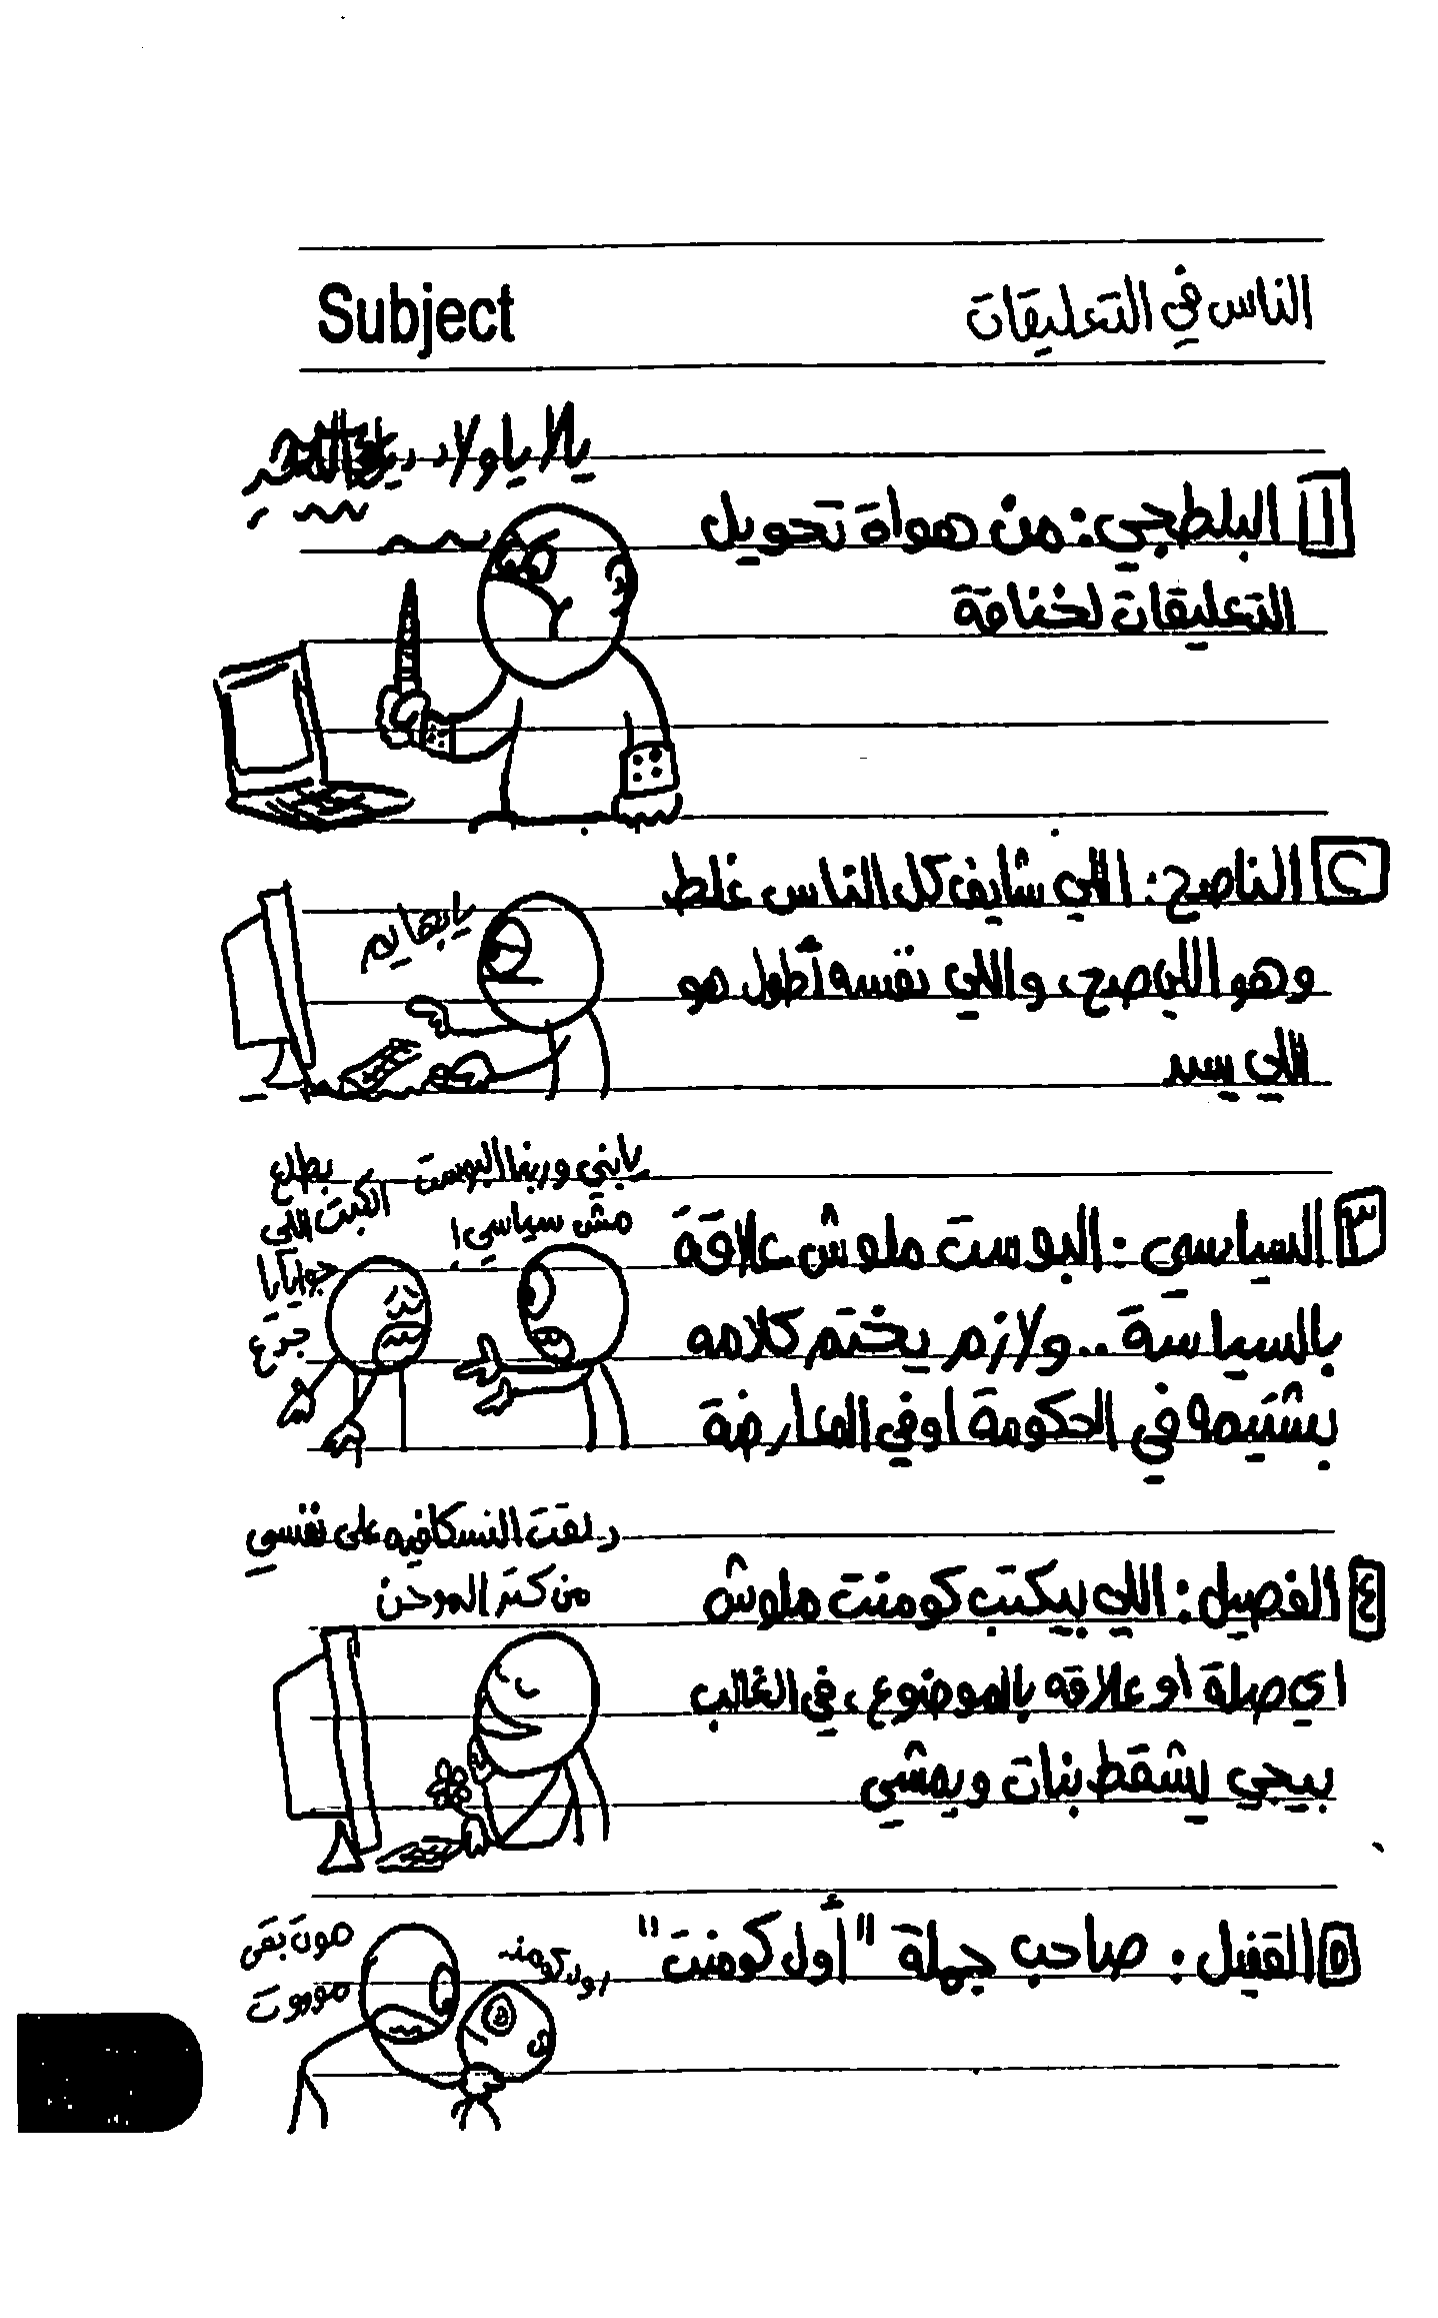 Subject
الناس في التعليقات
يالا يا ولاد
١ البلطجي: من هواة تحويل
التعليقات لخناقة
٢ الناصح: اللي شايف كل الناس غلط
وهو اللي صح، واللي نفسه أطول هو
اللي يسد
يا بهايم
٣ السياسي: البوست ملوش علاقة
بالسياسة.. ولازم يختم كلامه
بشتيمه في الحكومة او في المعارضة
يابني وربنا البوست
مش سياسي!
بطلع
الكبت اللي
جوايايا
جدع
٤ الفصيل: اللي بيكتب كومنت ملوش
اي صلة او علاقه بالموضوع، في الغالب
بيجي يشقط بنات ويمشي
دلقت النسكافيه على نفسي
من كتر الموحن
٥ القفيل: صاحب جملة "أول كومنت"
اول كومنت
موت بقى
موووت